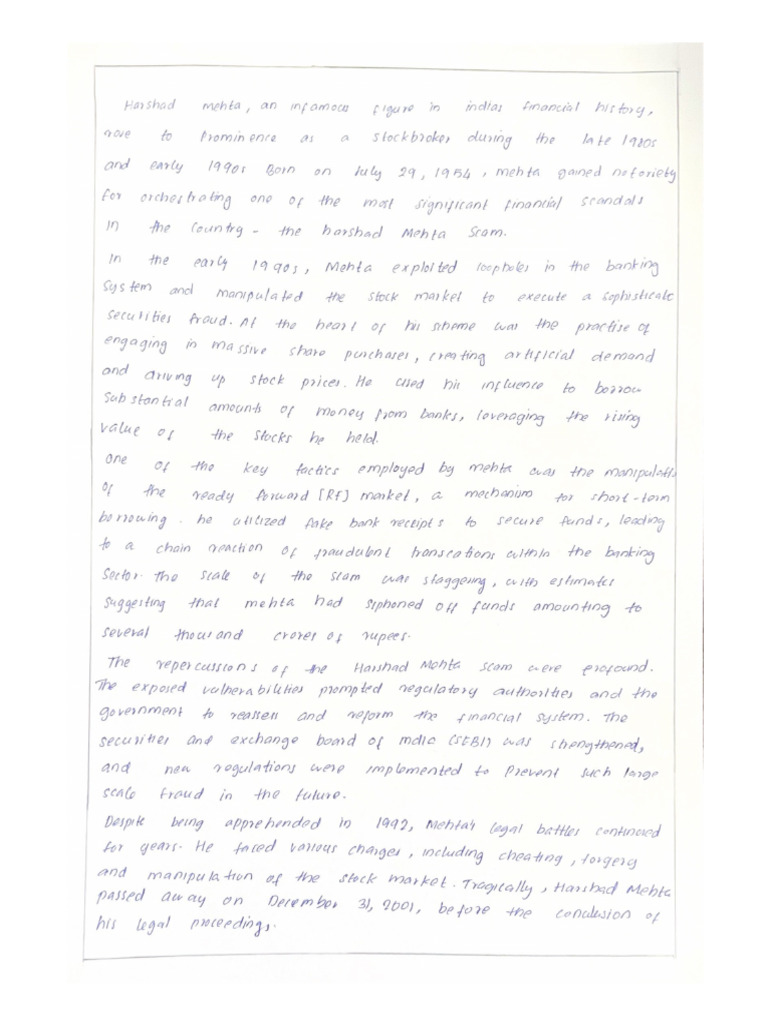 Harshad mehta, an infamous figure in indias financial history,
rove to Prominence as a stockbroker during the late 1980s
and early 1990s Born on July 29, 1954, mehta gained notoriety
for orchestrating one of the most significant financial scandals
in the country - the harshad Mehta Scam.
In the early 1990s, Mehta exploited loopholes in the banking
System and manipulated the stock market to execute a sophisticate
securities fraud. At the heart of his scheme was the practise of
engaging in massive share purchases, creating artificial demand
and driving up stock prices. He used his influence to borrow
Substantial amounts of money from banks, leveraging the rising
value of the stocks he held.
One of the key tactics employed by mehta was the manipulati
of the ready forward [Rf] market, a mechanism for short-term
borrowing. he utilized fake bank receipts to secure funds, leading
to a chain reaction of fraudulent transcations within the banking
Sector. The scale of the scam was staggering, with estimates
suggesting that mehta had siphoned off funds amounting to
several thousand crores of rupees.
The repercussions of the Harshad Mehta scam were profound.
The exposed vulnerabilities prompted regulatory authorities and the
government to reassess and reform the financial system. The
securities and exchange board of India (SEBI) was strengthened,
and new regulations were implemented to prevent such large
scale fraud in the future.
Despite being apprehended in 1992, Mehta's legal battles continued
for years. He faced various charges, including cheating, forgery
and manipulation of the stock market. Tragically, Harshad Mehta
passed away on December 31, 2001, before the conclusion of
his legal proceedings.